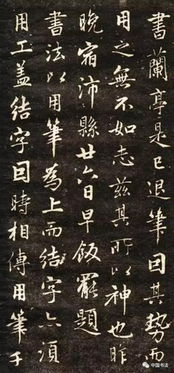 書蘭亭是已退筆因其勢而
用之無不如志茲其所以神也昨
晚宿沛縣廿六日早飯罷題
書法以用筆為上而結字亦須
用工蓋結字因時相傳用筆千
中国书法